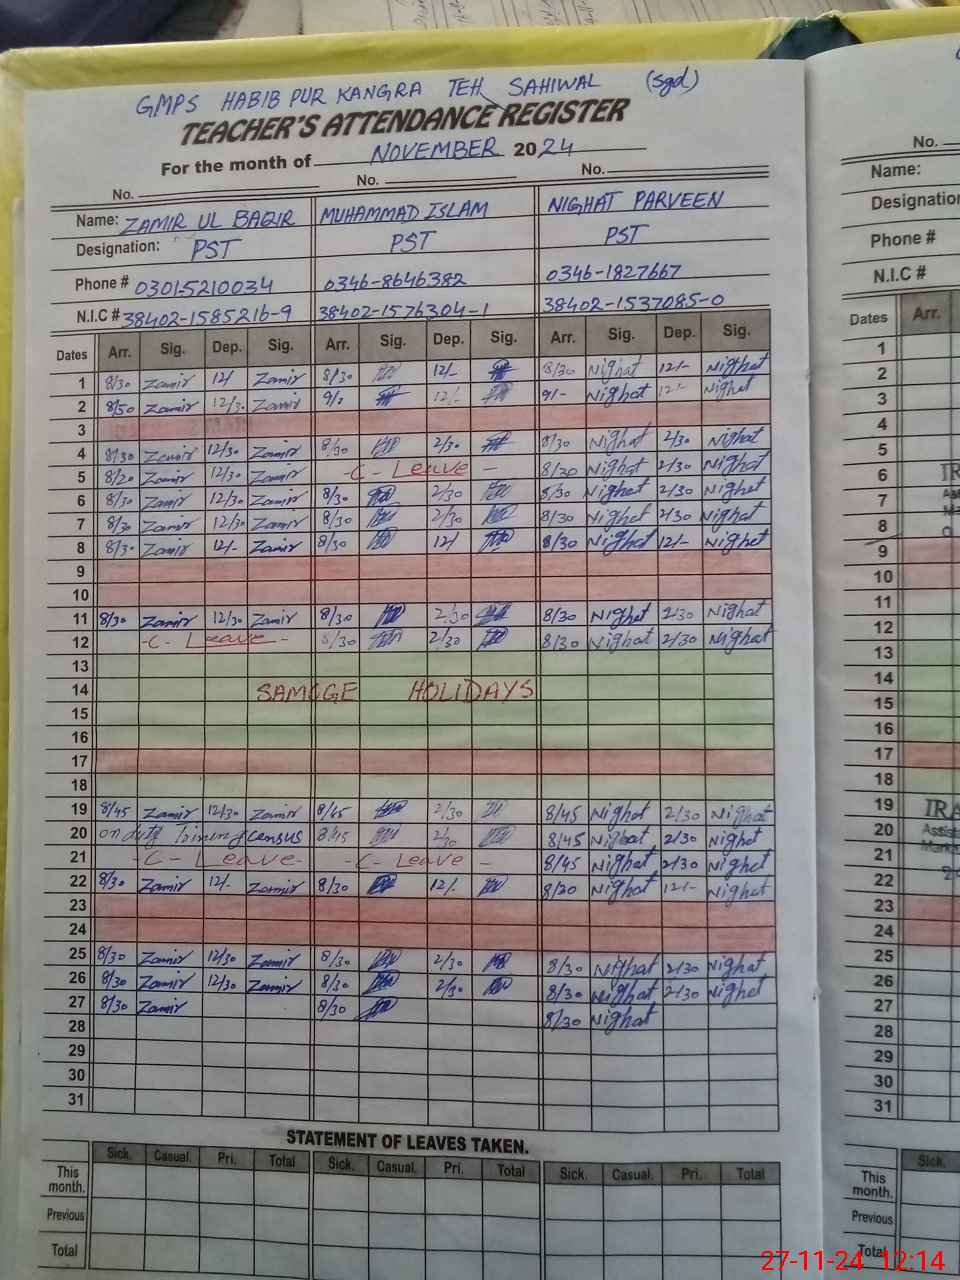 GMPS HABIB PUR KANGRA TEH SAHIWAL (Sgd)
TEACHER'S ATTENDANCE REGISTER
For the month of NOVEMBER 2024
No. No. No.
Name: ZAMIR UL BAQIR MUHAMMAD ISLAM NIGHAT PARVEEN
Designation: PST PST PST
Phone # 0301-5210034 0346-8646382 0346-1827667
N.I.C # 38402-1585216-9 38402-1576304-1 38402-1537085-0
Dates Arr. Sig. Dep. Sig. Arr. Sig. Dep. Sig. Arr. Sig. Dep. Sig.
1 8/30 Zamir 12/ Zamir 8/30 12/- 8/30 Nighat 12/- Nighat
2 8/50 Zamir 12/30 Zamir 9/- 12/- 9/- Nighat 12/- Nighat
3
4 8/30 Zamir 12/30 Zamir 8/30 2/30 8/30 Nighat 2/30 Nighat
5 8/20 Zamir 12/30 Zamir -C- Leave - 8/30 Nighat 2/30 Nighat
6 8/30 Zamir 12/30 Zamir 8/30 2/30 8/30 Nighat 2/30 Nighat
7 8/30 Zamir 12/30 Zamir 8/30 2/30 8/30 Nighat 2/30 Nighat
8 8/30 Zamir 12/- Zamir 8/30 12/ 8/30 Nighat 12/- Nighat
9
10
11 8/30 Zamir 12/30 Zamir 8/30 2/30 8/30 Nighat 2/30 Nighat
12 -C- Leave - 8/30 2/30 8/30 Nighat 2/30 Nighat
13
14 SAMOGE HOLIDAYS
15
16
17
18
19 8/45 Zamir 12/30 Zamir 8/45 2/30 8/45 Nighat 2/30 Nighat
20 on duty census 8/45 2/30 8/45 Nighat 2/30 Nighat
21 -C- Leave- -C- Leave - 8/45 Nighat 2/30 Nighat
22 8/30 Zamir 12/- Zamir 8/30 12/- 8/20 Nighat 12/- Nighat
23
24
25 8/30 Zamir 12/30 Zamir 8/30 2/30 8/30 Nighat 2/30 Nighat
26 8/30 Zamir 12/30 Zamir 8/30 2/30 8/30 Nighat 2/30 Nighat
27 8/30 Zamir 8/30 8/30 Nighat
28
29
30
31
STATEMENT OF LEAVES TAKEN.
Sick. Casual. Pri. Total Sick. Casual. Pri. Total Sick. Casual. Pri. Total
This month.
Previous
Total
No.
Name:
Designation
Phone #
N.I.C #
Dates Arr.
1
2
3
4
5
6
7
8
9
10
11
12
13
14
15
16
17
18
19
20
21
22
23
24
25
26
27
28
29
30
31
Sick.
This month.
Previous
Total
27-11-24 12:14